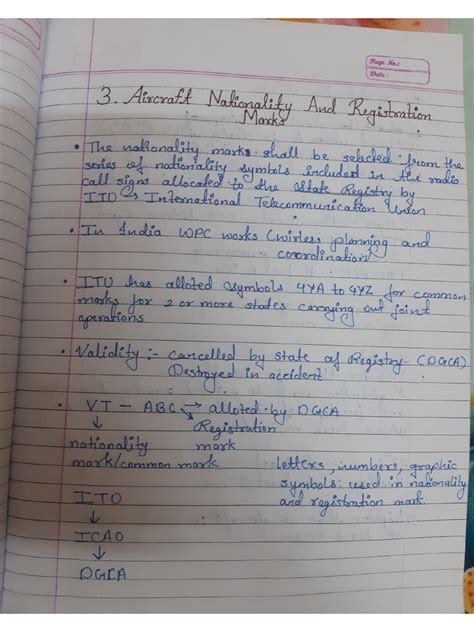 Page No.:
Date:
3. Aircraft Nationality And Registration
Marks
• The nationality marks shall be selected from the
series of nationality symbols included in the radio
call signs allocated to the State Registry by
ITO → International Telecommunication Union
• In India WPC works (wirless planning and
coordination)
• ITU has alloted symbols 4YA to 4YZ for common
marks for 2 or more states carrying out joint
operations
• Validity :- cancelled by state of Registry (DGCA)
Destroyed in accident
• VT - ABC → alloted by DGCA
↓ Registration
nationality mark
mark/common mark
letters, numbers, graphic
symbols used in nationality
and registration mark.
ITO
↓
ICAO
↓
DGCA